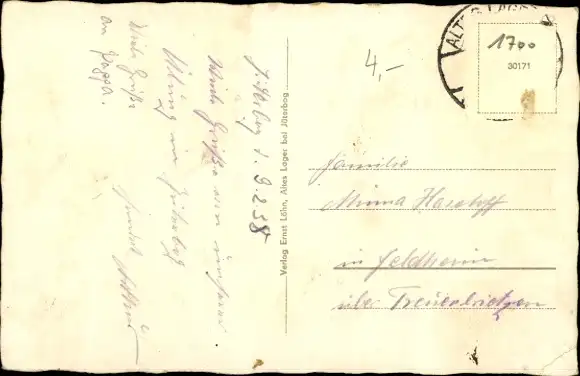 Jüterbog d. 9.2.38
Viele Grüße von unserer
Übung in Jüterbog
Viele Grüße
an Pappa.
Verlag Ernst Lühn, Altes Lager bei Jüterbog
4,-
ALTES LAGER
1700
30171
Familie
Minna
in Feldheim
über Treuenbrietzen